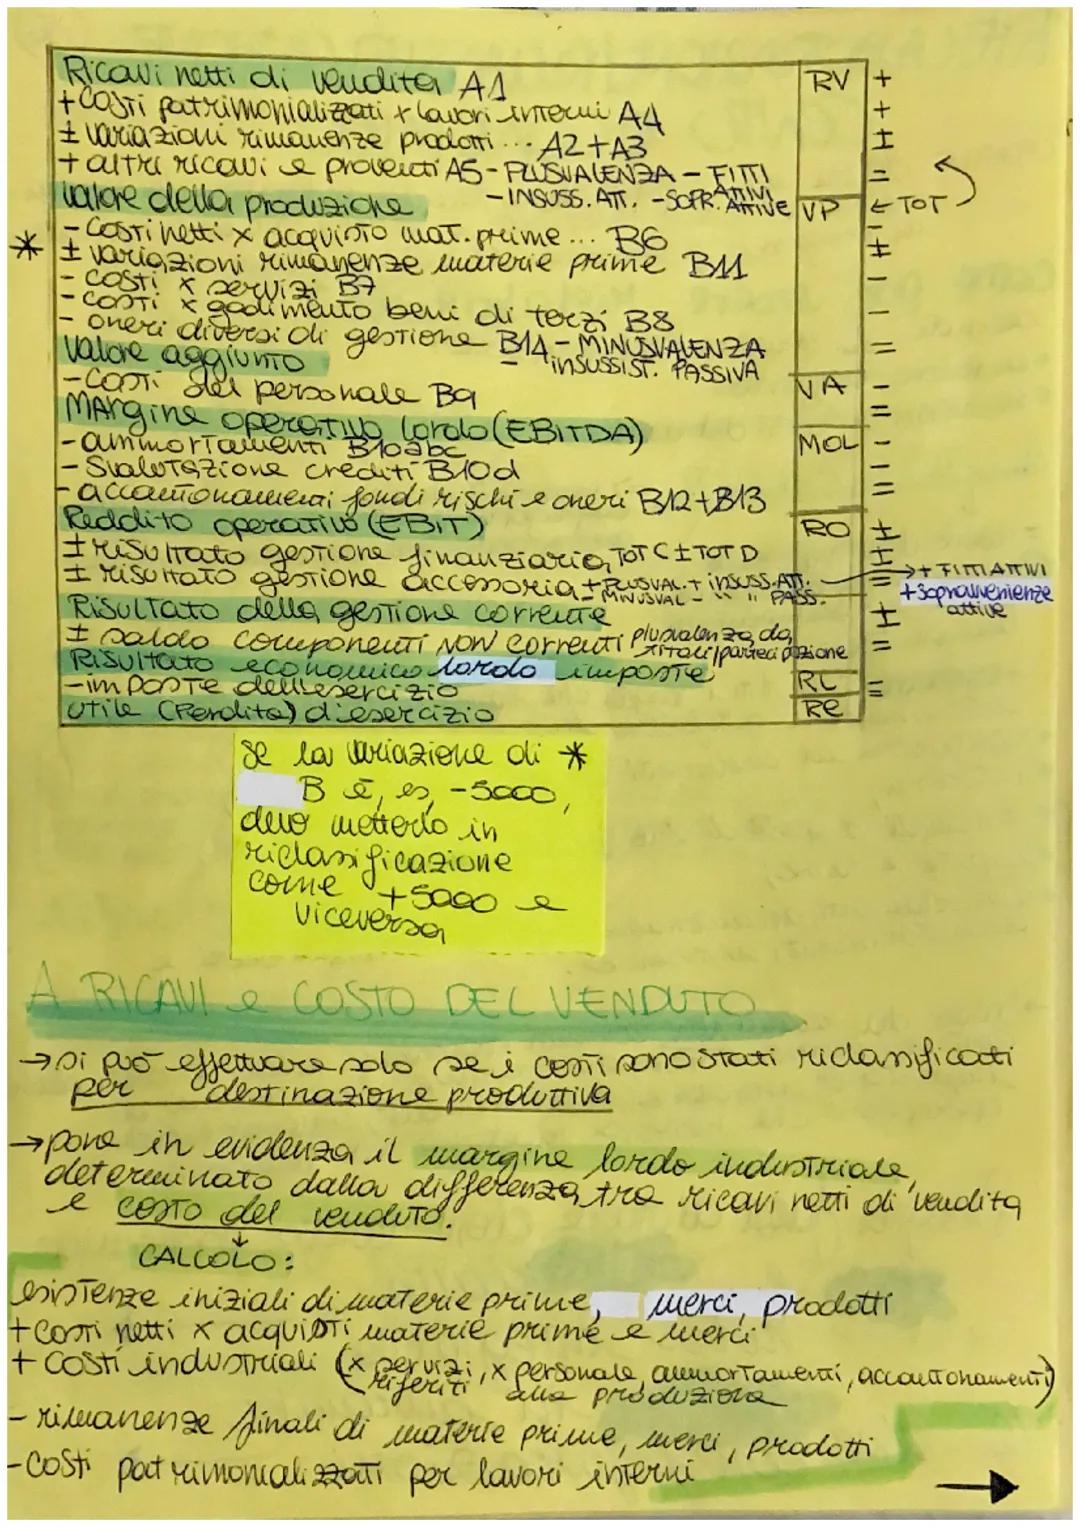 Ricavi netti di vendita A1 RV +
+ costi patrimonializzati x lavori interni A4 +
± variazioni rimanenze prodotti ... A2+A3 ±
+ altri ricavi e proventi A5 - PLUSVALENZA - FITTI ATTIVI =
- INSUSS. ATT. - SOPR. ATTIVE
Valore della produzione VP ← TOT
* - costi netti x acquisto mat. prime ... B6 -
± variazioni rimanenze materie prime B11 ±
- costi x servizi B7 -
- costi x godimento beni di terzi B8 -
- oneri diversi di gestione B14 - MINUSVALENZA =
- INSUSSIST. PASSIVA
Valore aggiunto VA
- costi del personale B9 -
Margine operativo lordo (EBITDA) MOL =
- ammortamenti B10abc -
- Svalutazione crediti B10d -
- accantonamenti fondi rischi e oneri B12+B13 =
Reddito operativo (EBIT) RO
± risultato gestione finanziaria, TOT C ± TOT D ±
± risultato gestione accessoria + PLUSVAL. + INSUSS. ATT. ± → + FITTI ATTIVI
- MINUSVAL - " " PASS. = + Sopravvenienze attive
Risultato della gestione corrente
± saldo componenti NON correnti plusvalenza da titoli/partecipazione ±
Risultato economico lordo imposte RL =
- imposte dell'esercizio
Utile (Perdita) d'esercizio RE =
Se la variazione di *
B è, es, -5000,
devo metterlo in
riclassificazione
come +5000 e
viceversa
A RICAVI e COSTO DEL VENDUTO
→ si può effettuare solo se i costi sono stati riclassificati
per destinazione produttiva
→ pone in evidenza il margine lordo industriale,
determinato dalla differenza tra ricavi netti di vendita
e costo del venduto.
↓
CALCOLO:
esistenze iniziali di materie prime, merci, prodotti
+ costi netti x acquisti materie prime e merci
+ costi industriali (x servizi, x personale, ammortamenti, accantonamenti)
riferiti alla produzione
- rimanenze finali di materie prime, merci, prodotti
- costi patrimonializzati per lavori interni
→